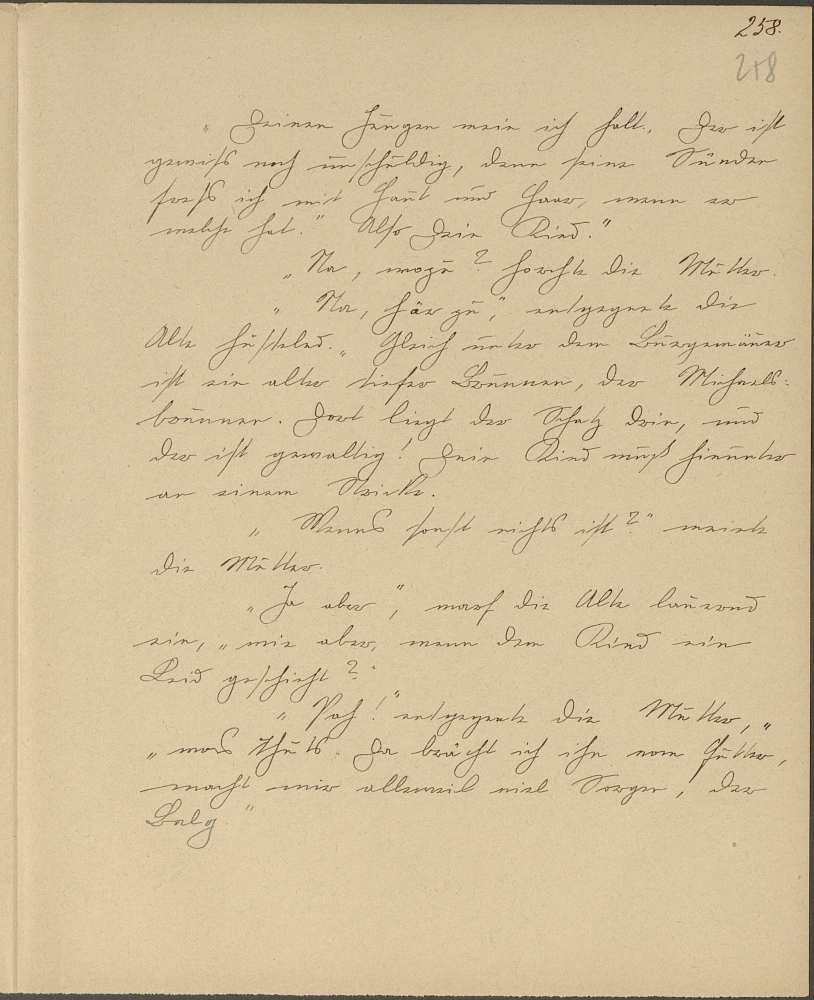 258.
218
„Deinen Jungen mein ich halt. Der ist
gewiss noch unschuldig, denn seine Sünden
fress ich mit Haut und Haar, wenn er
welche hat.“ Also Dein Kind.“
„Na, wozu? horchte die Mutter.
„Na, hör zu,“ entgegnete die
Alte hüstelnd. „Gleich unter dem Burgemäuer
ist ein alter tiefer Brunnen, der Michaels-
brunnen. Dort liegt der Schatz drin, und
der ist gewaltig! Dein Kind muß hinunter
an einem Stricke.
„Wenns sonst nichts ist?“ meinte
die Mutter.
„Ja aber“, warf die Alte lauernd
ein, „wie aber, wenn dem Kind ein
Leid geschieht?“
„Pah!“ entgegente die Mutter, „
„was thuts. Da brächt ich ihn vom Futter,
macht mir alleweil viel Sorgen, der
Balg.“